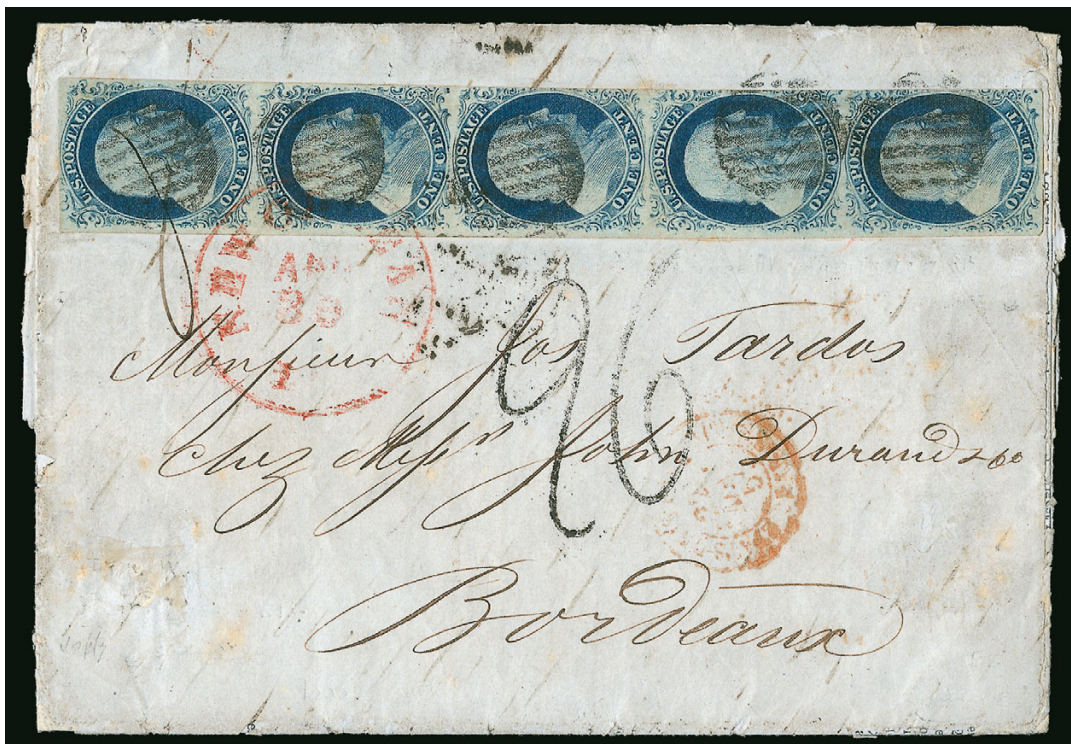 U.S. POSTAGE ONE CENT U.S. POSTAGE ONE CENT U.S. POSTAGE ONE CENT U.S. POSTAGE ONE CENT U.S. POSTAGE ONE CENT
30
26
Monsieur Jos Tardos
chez Messrs John Durand & Co
Bordeaux